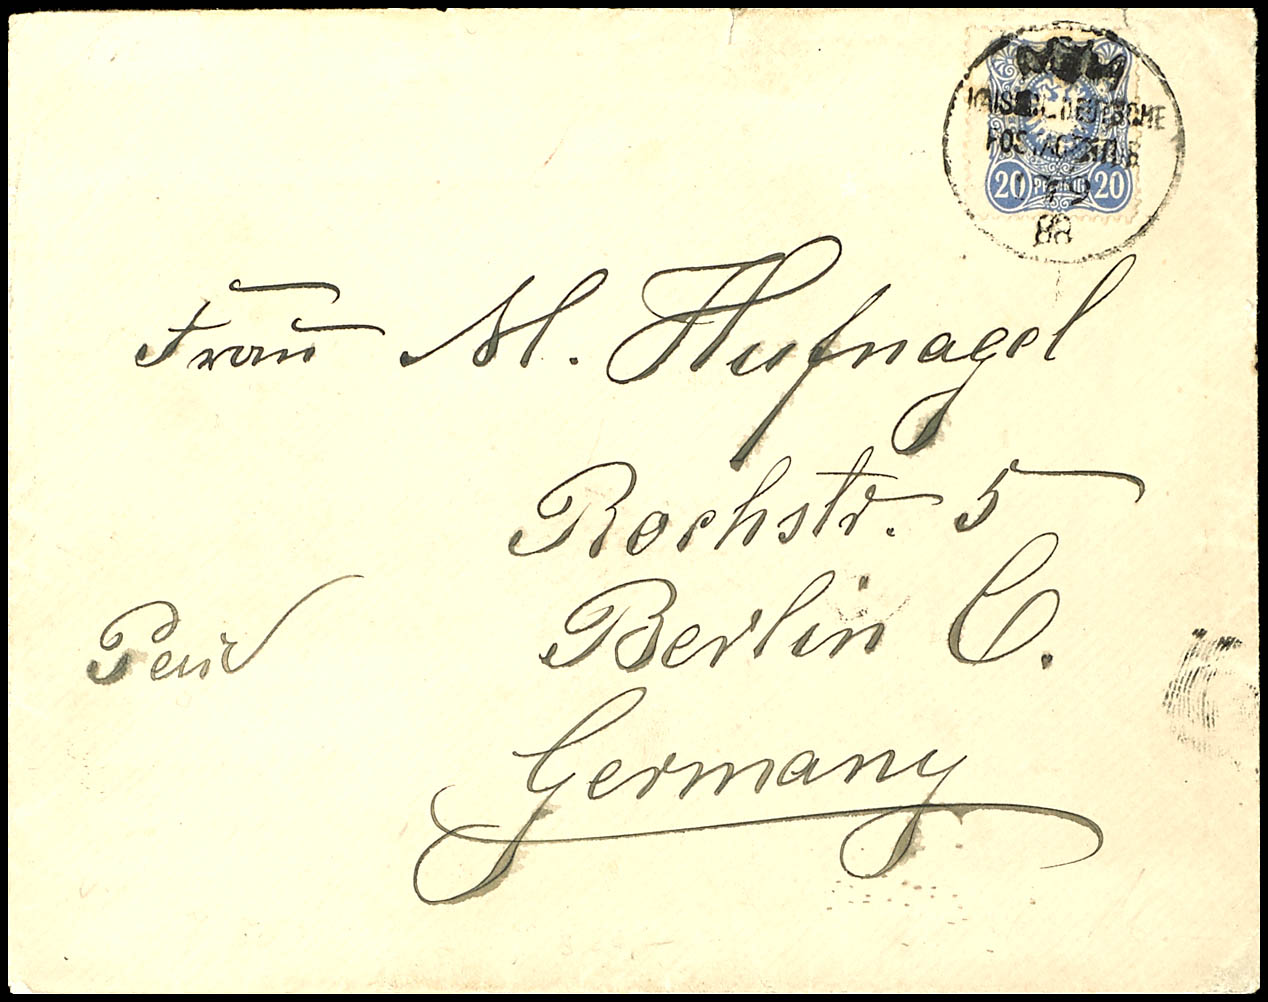 KAISERL. DEUTSCHE
POSTAGENTUR
20 PFENNIG 20
88
Frau M. Hufnagel
Rochstr. 5
Berlin C.
Paid
Germany